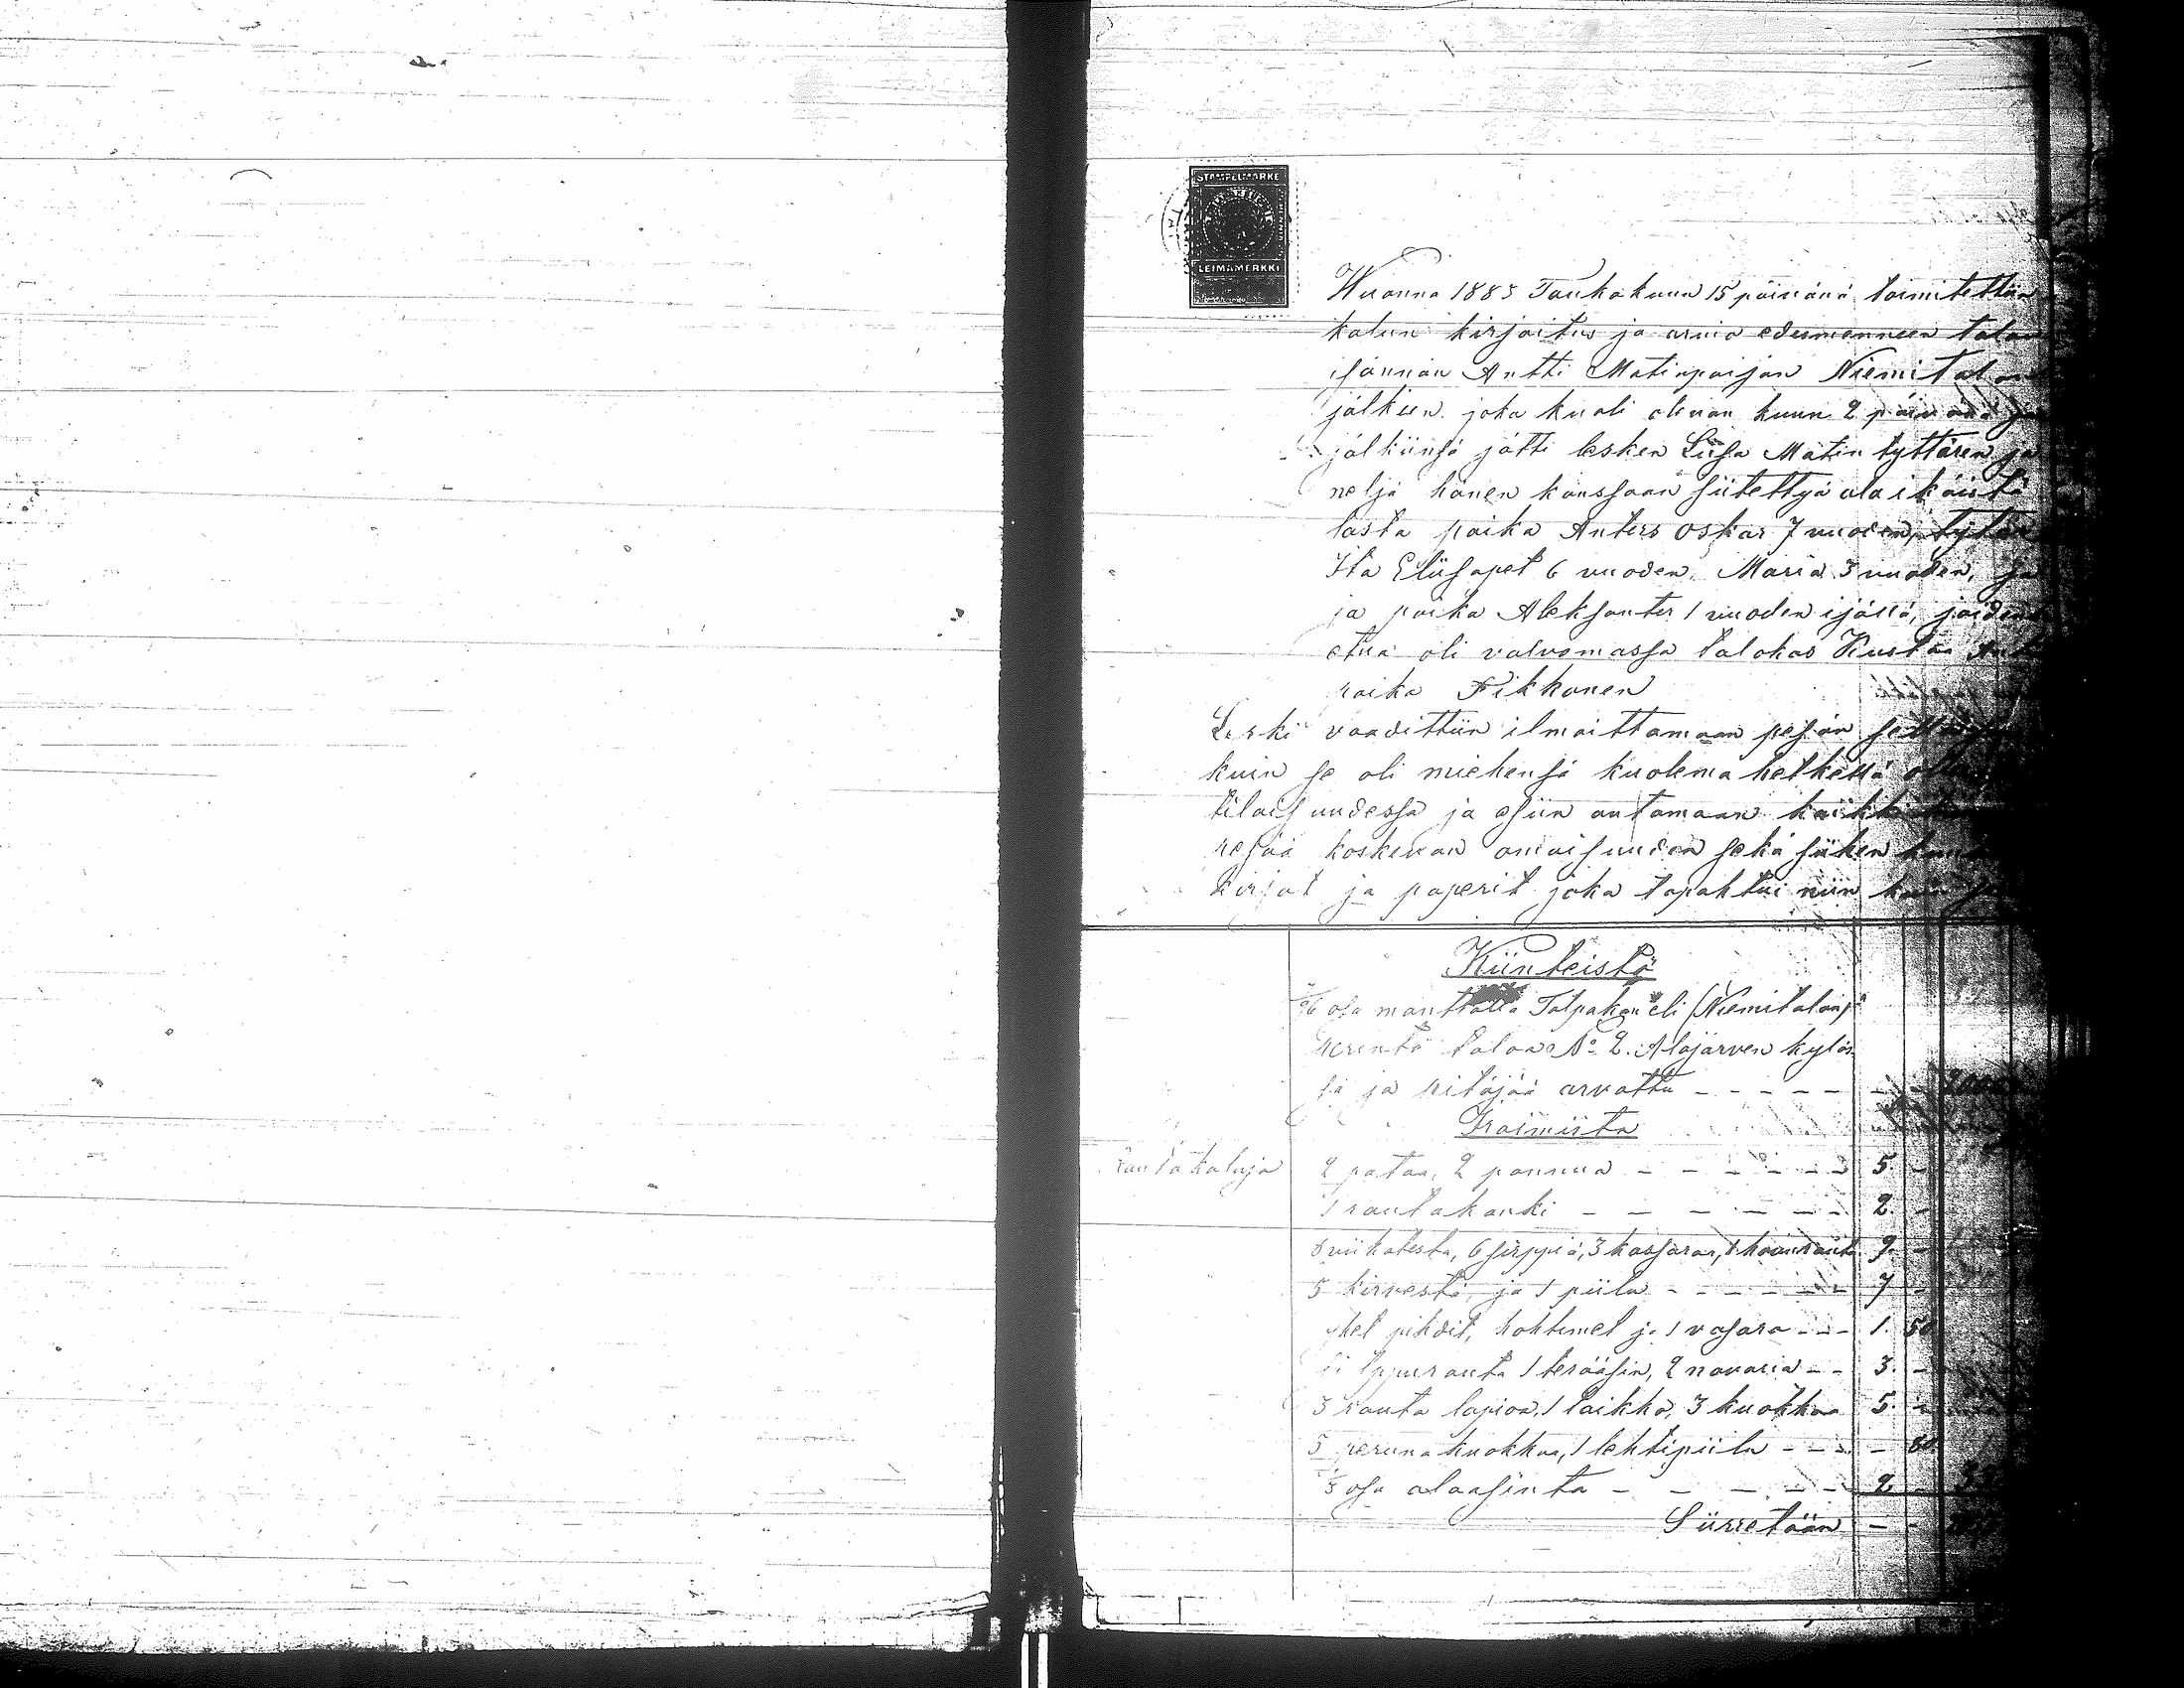 STAMPELMARKE
LEIMAMERKKI
Wuonna 1883 Toukokuun 15 päivänä toimitettiin
kalun kirjoitus ja arvio edesmenneen talon
isännän Antti Matinpoijan Niemitalon
jälkeen joka kuoli olevan kuun 2 päivänä ja
jälkiinsä jätti lesken Liisa Matin tyttären ja
neljä hänen kanssaan siitettyä ala ikäistä
lasta poika Anters Oskar 7 vuoden, tytär
Ita Eliisapet 6 vuoden, Maria 3 vuoden, ja
ja poika Aleksanter 1 vuoden ijässä, joiden
etua oli valvomassa talokas Kustaa
poika Pikkanen
Leski vaadittiin ilmoittamaan pesän
kuin se oli miehensä kuolema hetkellä
tilaisuudessa ja esiin antamaan kaikki
pesää koskevan omaisuuden sekä siihen
kirjat ja paperit joka tapahtui niin kuin
Kiinteistö
osa manttalia Talpakan eli (Niemitalon)
perintö taloa No 2. Alajärven kylä
sä ja pitäjää arvattu - - - - -
Iraimista
Rautakaluja 2 pataa, 2 pannua - - - - 5. -
1 rautakanki - - - - - 2. -
viikatesta, 6 sirppiä, 3 kassaraa, 9. -
5 kirvestä, ja 1 piilu - - - - - 7 -
yhet pihdit, hohtimet ja 1 vasara - - - 1. 50
1 terääsin, 2 navaria - - 3. -
3 rauta lapioa, 1 laikka, 3 kuokkaa 5. -
5 peruna kuokkaa, 1 lehtipiilu - - - - 50
osa alaasinta - - - - - 2 -
Siirretään - -